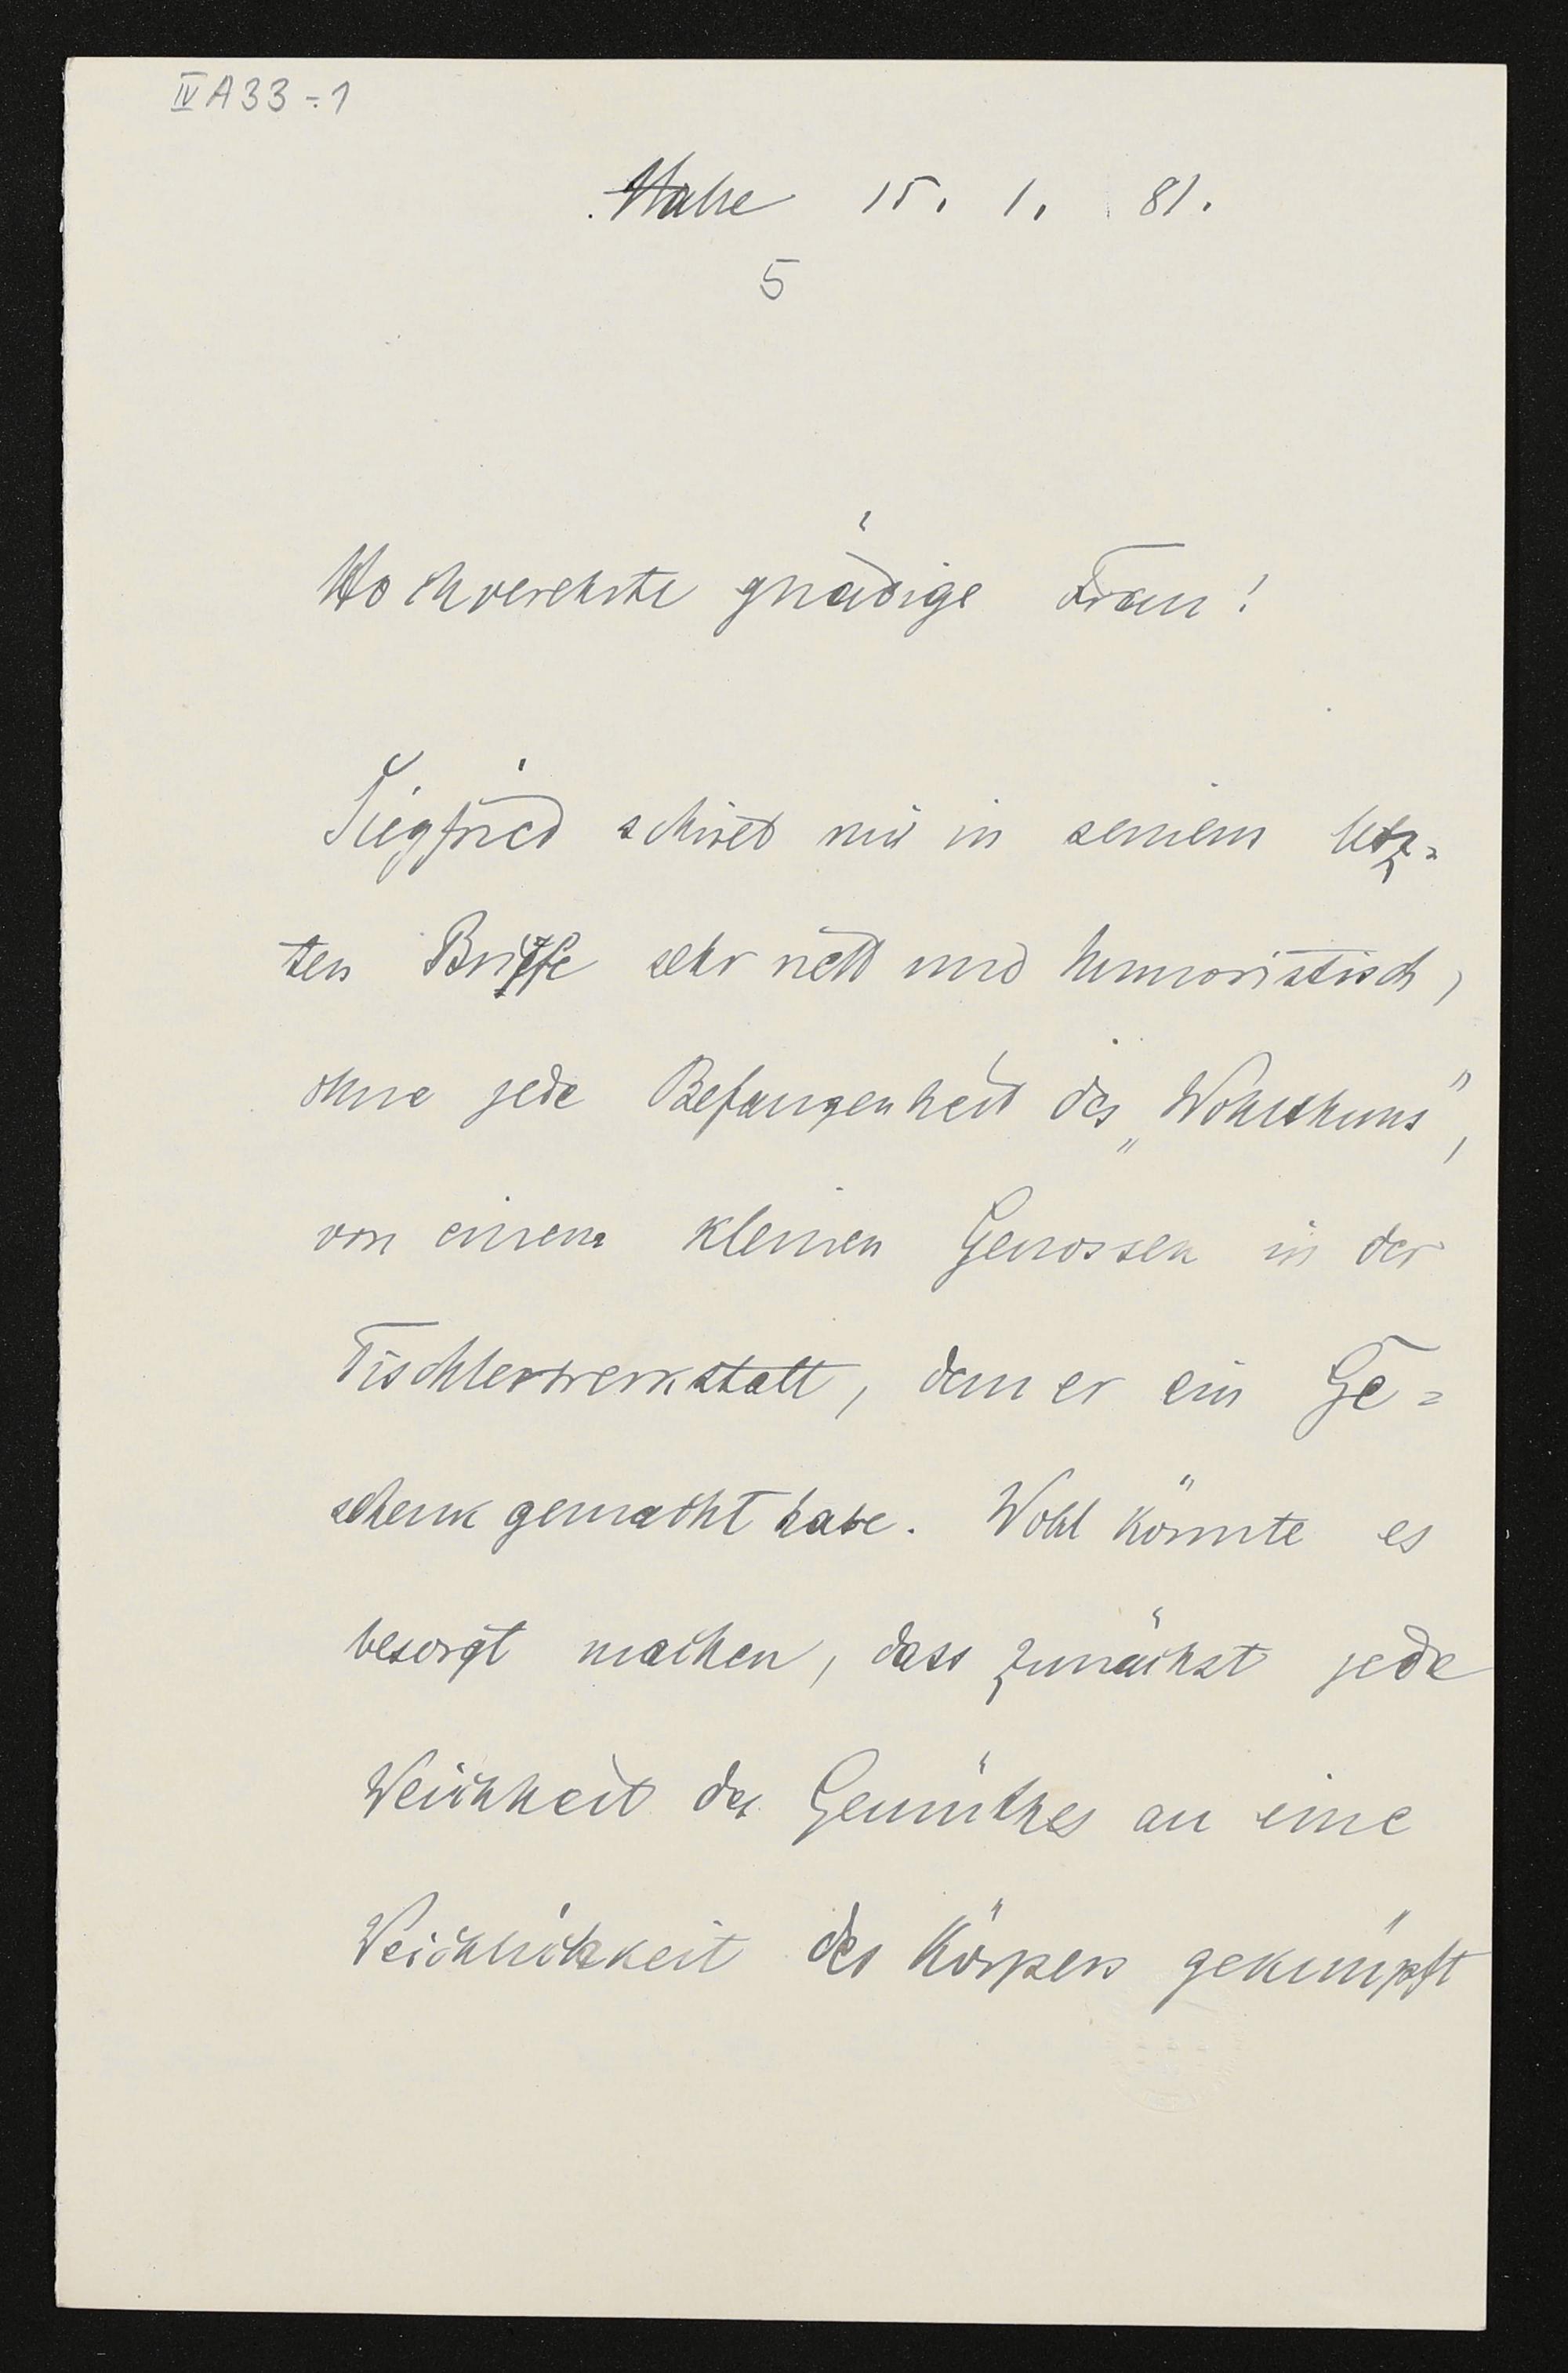 IV A 33-1
Halle 15. 1. 81.
5
Hochverehrte gnädige Frau!
Siegfried schrieb mir in seinem letz=
ten Briefe sehr nett und humoristisch,
ohne jede Befangenheit des „Wohlthuns",
von einem kleinen Genossen in der
Tischlerwerkstatt, dem er ein Ge=
schenk gemacht habe. Wohl könnte es
besorgt machen, dass zunächst jede
Weichheit des Gemüthes an eine
Weichlichkeit des Körpers geknüpft